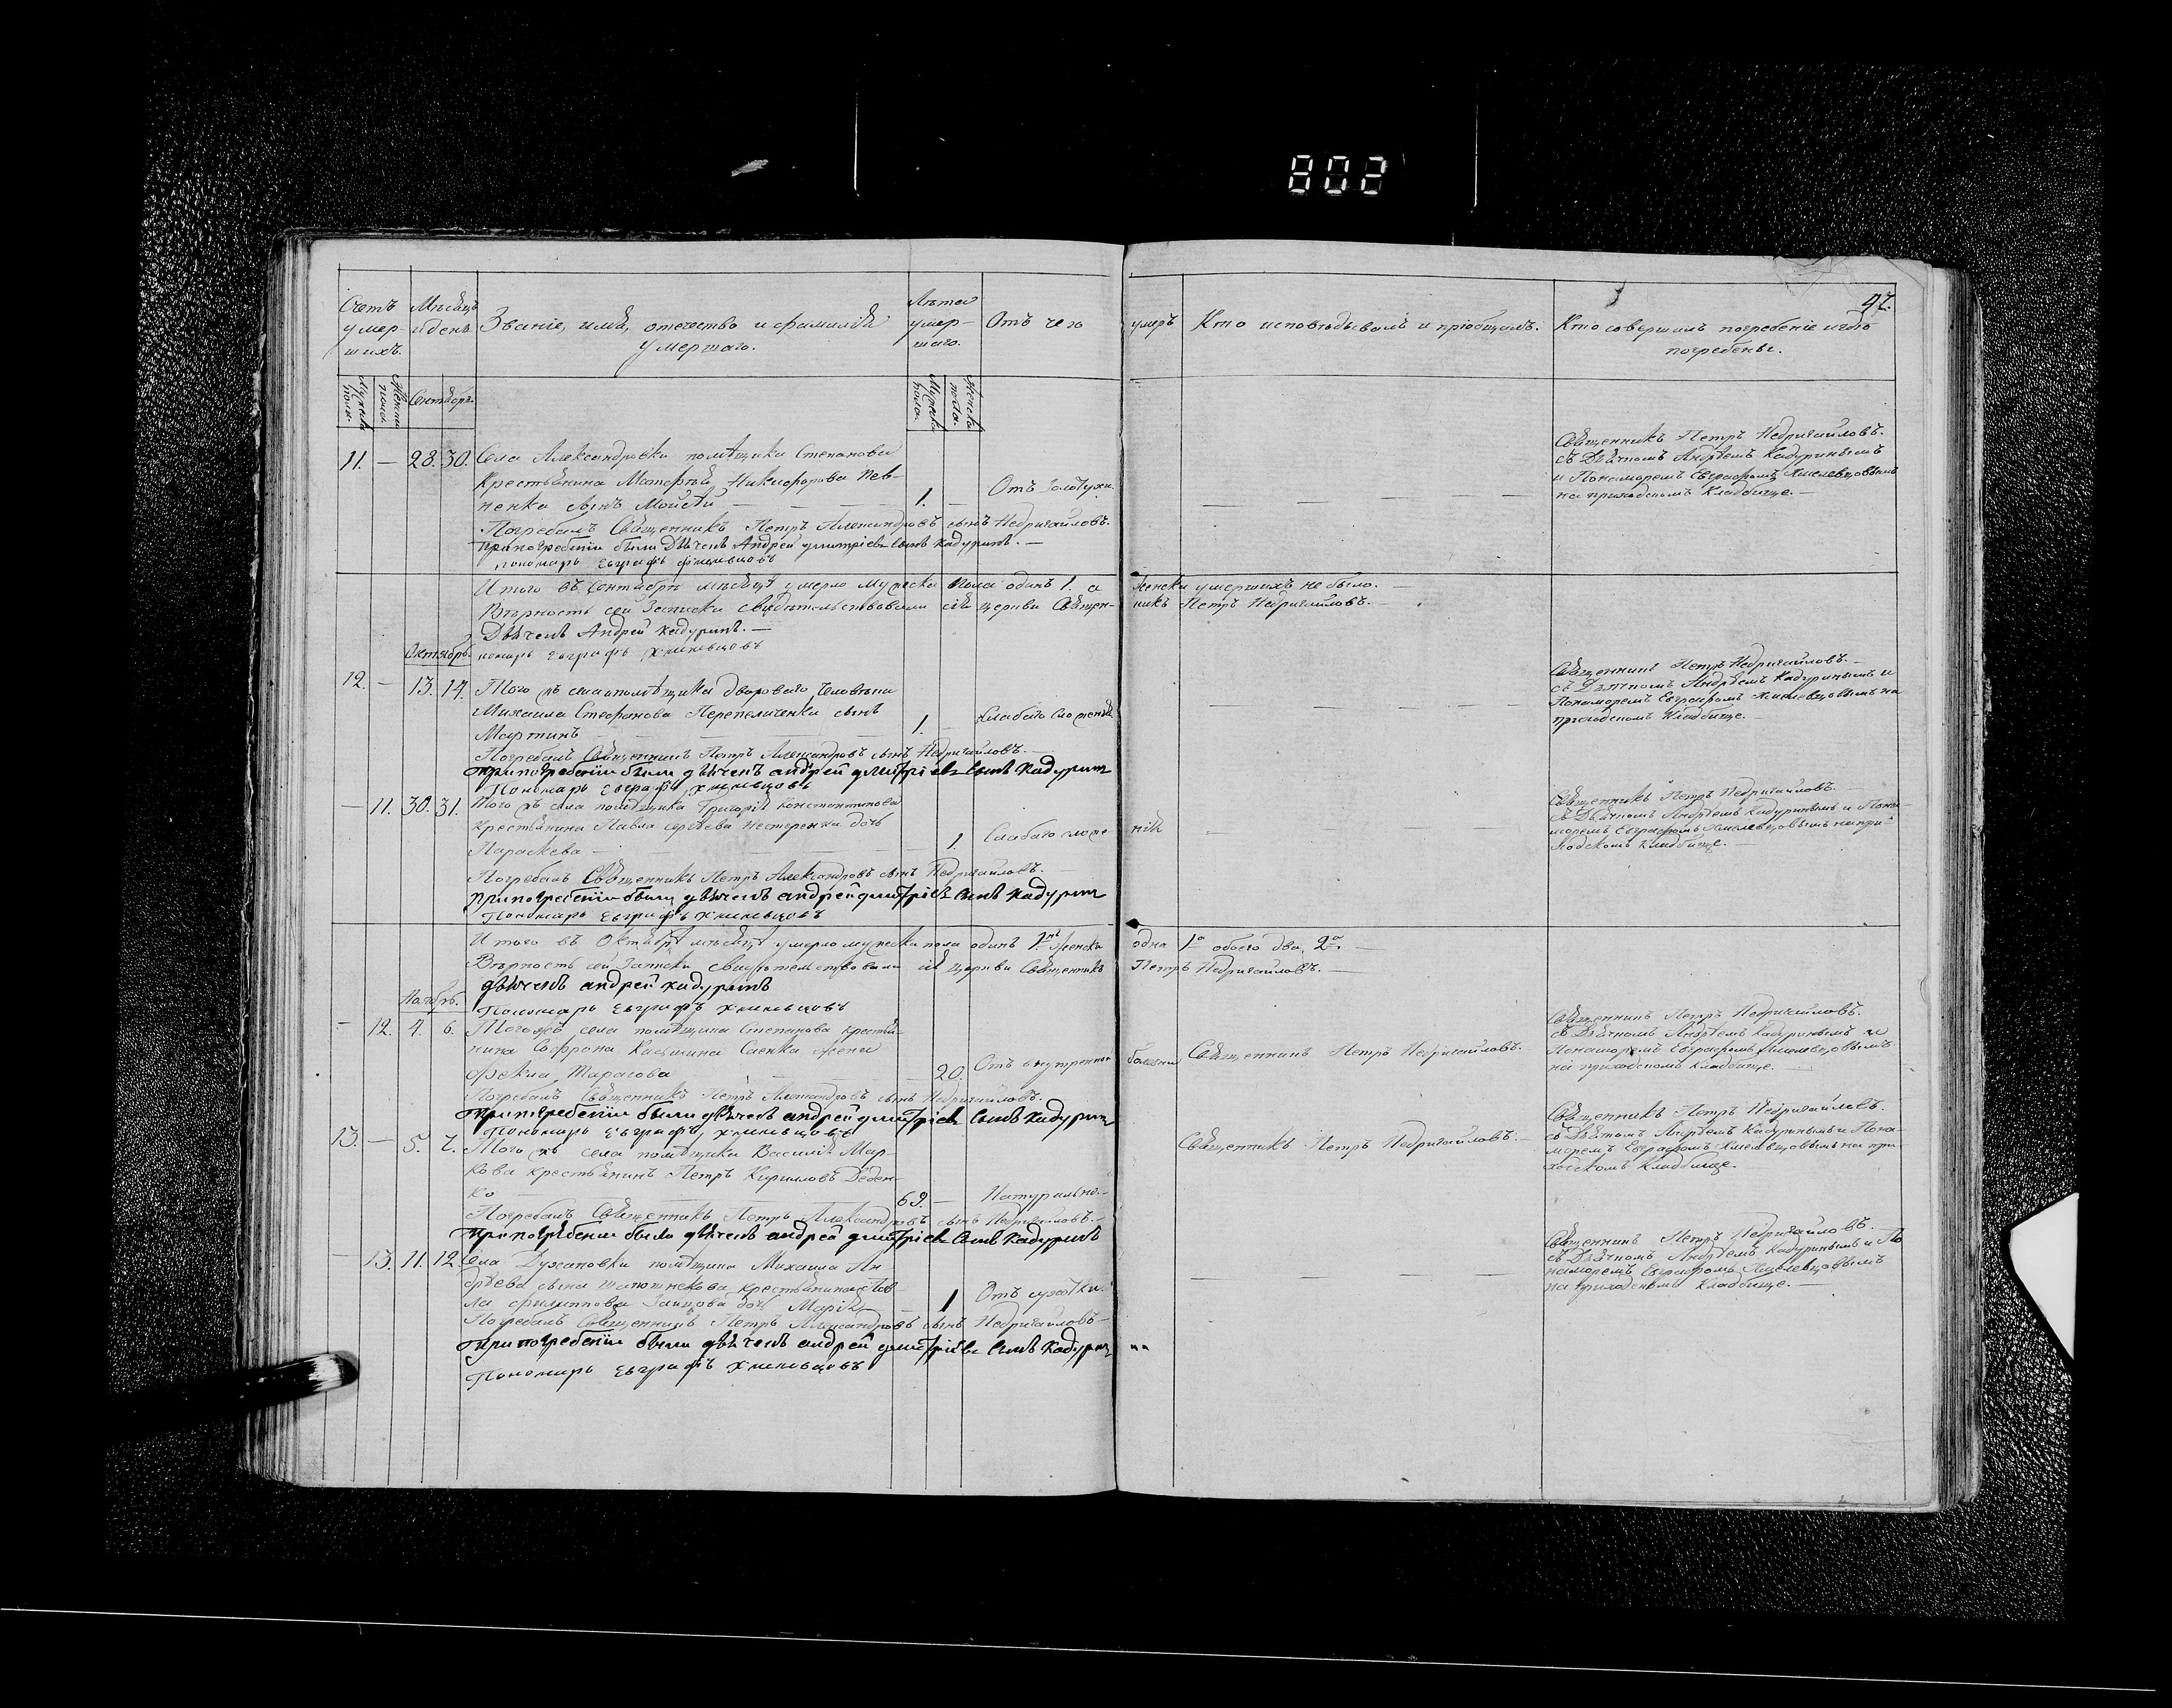 802
Счетъ умер-шихъ.
Мѣсяцъ и день.
Званіе, имя, отечество и фамилія
умершаго.
Лѣта умер-шаго.
Отъ чего
умеръ
Кто исповѣдывалъ и пріобщалъ.
Кто совершилъ погребеніе и гдѣ
погребены.
97.
Мужеска пола.
Женска пола.
Сентябрь.
Мужеска пола.
Женска пола.
11. — 28. 30. Села Александровки помѣщика Степанова
крестьянина Матфѣя Никифорова Пев-
ненка сынъ Мойсѣй — 1. — Отъ золотухи.
Погребалъ Священникъ Петръ Александровъ сынъ Недригайловъ.
При погребеніи были Дьячекъ Андрей дмитріевъ сынъ Кадуринъ. —
пономарь Евграфъ Хмелевцовъ
Священникъ Петръ Недригайловъ.
съ Дьячкомъ Андрѣемъ Кадуринымъ
и Пономаремъ Евграфомъ Хмелевцовымъ
на приходскомъ Кладбище. —
Итого въ Сентябрѣ мѣсяцѣ умерло мужеска пола одинъ 1. а женска умершихъ не было.
Вѣрность сей Записки свидѣтельствовали сія церкви Священ-никъ Петръ Недригайловъ. —
Дьячекъ Андрей Кадуринъ. —
пономарь Евграфъ Хмелевцовъ
Октябрь.
12. — 13. 14. Того жъ села помѣщика двороваго человѣка
Михаила Стефанова Перепеличенки сынъ
Мартинъ — 1. — Слабаго сложенія
Погребалъ Священникъ Петръ Александровъ сынъ Недригайловъ. —
При погребеніи были дьячекъ андрей дмитріевъ сынъ Кадуринъ
Пономарь Евграфъ Хмелевцовъ
Священникъ Петръ Недригайловъ. —
съ Дьячкомъ Андрѣемъ Кадуринымъ и
Пономаремъ Евграфомъ Хмелевцовымъ на
приходскомъ Кладбище. —
— 11. 30. 31. Того жъ села помѣщика Григорія Константинова
крестьянина Павла Сергѣева Нестеренка дочь
Параскева — 1. Слабаго сложе-нія
Погребалъ Священникъ Петръ Александровъ сынъ Недригайловъ. —
При погребеніи были дьячекъ андрей дмитріевъ сынъ Кадуринъ
Пономарь Евграфъ Хмелевцовъ
Священникъ Петръ Недригайловъ. —
съ Дьячкомъ Андрѣемъ Кадуринымъ и Поно-
маремъ Евграфомъ Хмелевцовымъ на при-
ходскомъ Кладбище. —
Итого въ Октябрѣ мѣсяцѣ умерло мужеска пола одинъ 1нъ женска одна 1а обоего два, 2а. —
Вѣрность сей Записки Свидѣтельствовали сія церкви Священникъ Петръ Недригайловъ. —
дьячекъ андрей кадуринъ
Пономарь Евграфъ Хмелевцовъ
Ноябрь.
— 12. 4. 6. Того жъ села помѣщика Степанова крестья-
нина Софрона Касьяна Саенка жена
Фекла Тарасова — 20. Отъ внутренней болезни
Священникъ Петръ Недригайловъ.
Погребалъ Священникъ Петръ Александровъ сынъ Недригайловъ.
При погребеніи были дьячекъ андрей дмитріевъ сынъ Кадуринъ
Пономарь Евграфъ Хмелевцовъ
Священникъ Петръ Недригайловъ.
съ Дьячкомъ Андрѣемъ Кадуринымъ и
Пономаремъ Евграфомъ Хмелевцовымъ
на приходскомъ Кладбище.
13. — 5. 7. Того жъ села помѣщика Василія Мар-
кова крестьянинъ Петръ Кириловъ Деден-
ко — 69. — Натурально. —
Священникъ Петръ Недригайловъ. —
Погребалъ Священникъ Петръ Александровъ сынъ Недригайловъ. —
При погребеніи были дьячекъ андрей дмитріевъ сынъ Кадуринъ
Священникъ Петръ Недригайловъ.
съ Дьячкомъ Андрѣемъ Кадуринымъ и Поно-
маремъ Евграфомъ Хмелевцовымъ на при-
ходскомъ Кладбище.
— 13. 11. 12. Села Духановки помѣщика Михаила Ан-
дрѣева сына крестьянина Пав-
ла Филиппова Заицова дочь Марія — 1 Отъ сухотки.
Погребалъ Священникъ Петръ Александровъ сынъ Недригайловъ —
При погребеніи были дьячекъ андрей дмитріевъ сынъ Кадуринъ
Пономарь Евграфъ Хмелевцовъ
Священникъ Петръ Недригайловъ.
съ Дьячкомъ Андрѣемъ Кадуринымъ и По
номаремъ Евграфомъ Хмелевцовымъ
на приходскомъ Кладбище. —